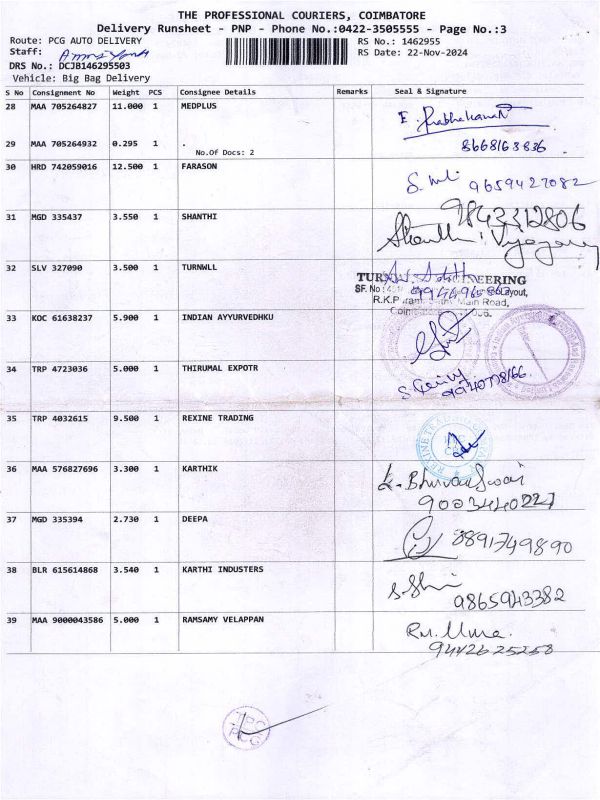 THE PROFESSIONAL COURIERS, COIMBATORE
Delivery Runsheet - PNP - Phone No.:0422-3505555 - Page No.:3
Route: PCG AUTO DELIVERY
RS No.: 1462955
Staff:
RS Date: 22-Nov-2024
DRS No.: DCJ8146295503
Vehicle: Big Bag Delivery
S No Consignment No Weight PCS Consignee Details Remarks Seal & Signature
28 MAA 705264827 11.000 1 MEDPLUS E. Prabhakaran
29 MAA 705264932 0.295 1 . 8668163836
No.Of Docs: 2
30 HRD 742059016 12.500 1 FARASON
9659427082
31 MGD 335437 3.550 1 SHANTHI 9843312806
Shanthi
32 SLV 327090 3.500 1 TURNWLL
ENGINEERING
SF. No
R.K.P Main Road,
33 KOC 61638237 5.900 1 INDIAN AYYURVEDHKU
34 TRP 4723036 5.000 1 THIRUMAL EXPOTR
35 TRP 4032615 9.500 1 REXINE TRADING
36 MAA 576827696 3.300 1 KARTHIK
37 MGD 335394 2.730 1 DEEPA
8891749890
38 BLR 615614868 3.540 1 KARTHI INDUSTERS
9865943382
39 MAA 9000043586 5.000 1 RAMSAMY VELAPPAN
R.M. Uma.
9442625258
PCG